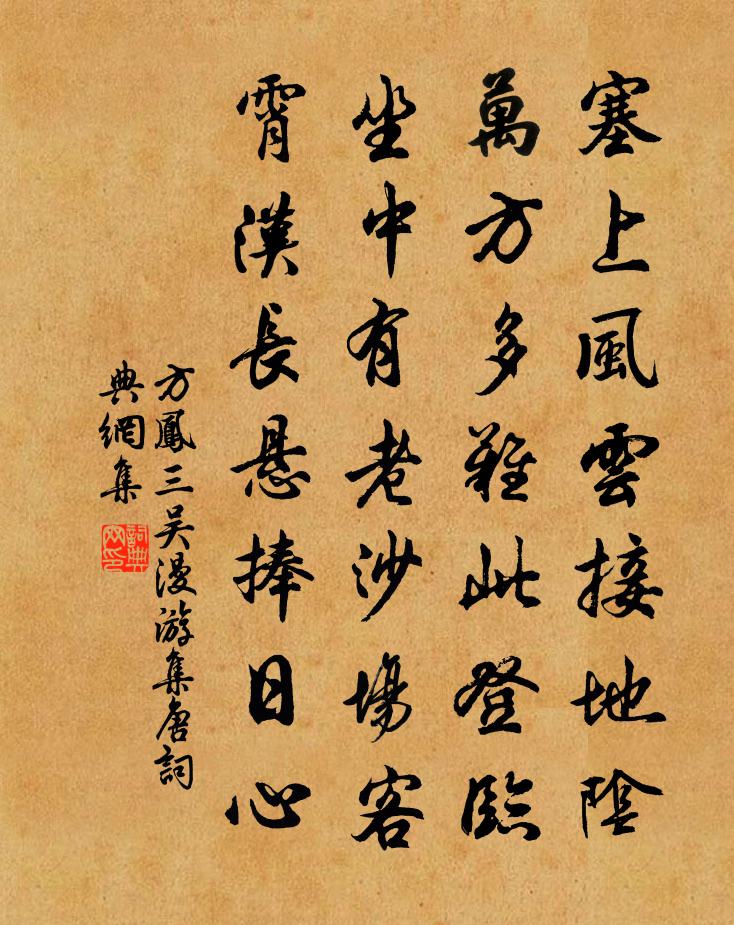 塞上風雲接地陰
萬方多難此登臨
坐中有老沙場客
霄漢長悬捧日心
方鳳三吴漫游集唐詞
典網集
詞典网印